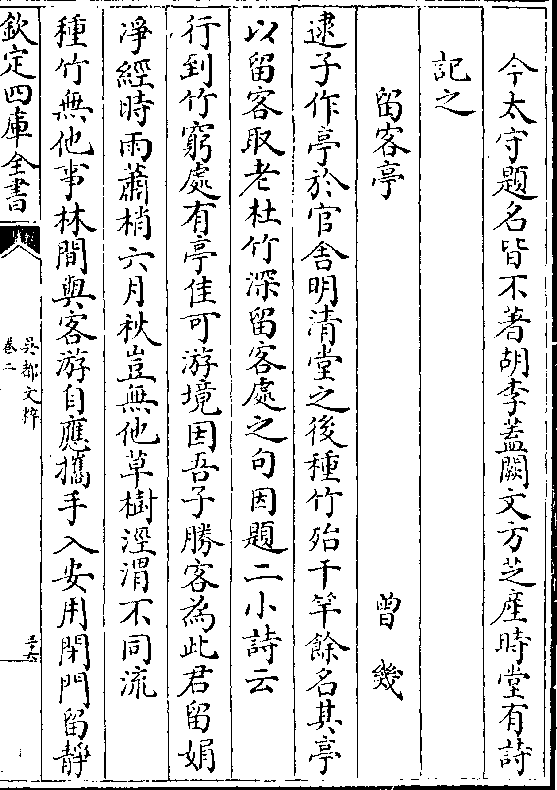 今太守題名皆不著胡李蓋闕文方芝産時堂有詩
記之
留客亭　曾幾
逮子作亭於官舎明清堂之後種竹殆千竿餘名其亭
以留客取老杜竹深留客處之句因題二小詩云
行到竹窮處有亭佳可游境因吾子勝客為此君留娟
凈經時雨蕭梢六月秋豈無他草樹涇渭不同流
種竹無他事林間與客游自應攜手入安用閉門留靜
欽定四庫全書
吳都文粹
卷二
三六